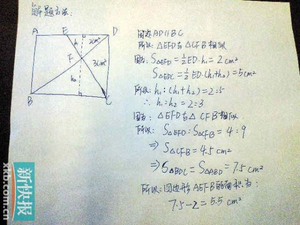 解题方法:
A E D
2cm²
h₁
F
3cm²
h₂
B C
因为AD∥BC
所以:△EFD与△CFB相似
因为: S△EFD=½ED·h₁=2cm²
S△EDC=½ED·(h₁+h₂)=5cm²
所以: h₁:(h₁+h₂)=2:5
∴ h₁:h₂=2:3
因为: △EFD与△CFB相似
所以: S△EFD:S△CFB=4:9
⇒S△CFB=4.5cm²
⇒S△BDC=S△ABD=7.5cm²
所以:四边形AEFB的面积为:
7.5-2=5.5cm²
新快报
xkb.com.cn